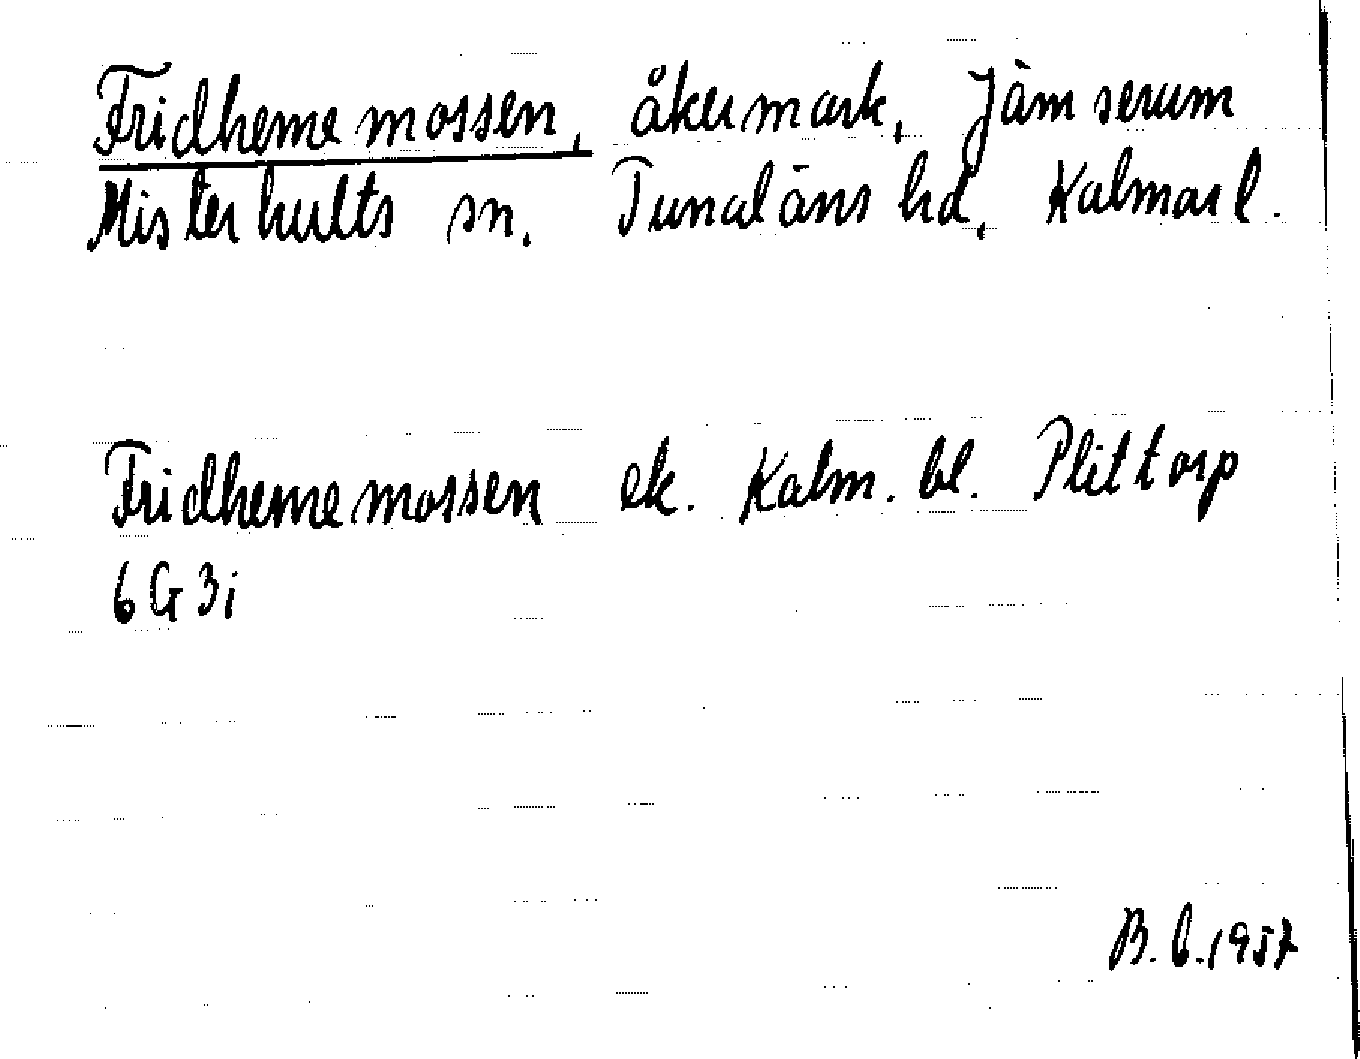 Fridhememossen, åkermark, Jämserum
Misterhults sn. Tunaläns hd, Kalmar l.
Fridhememossen ek. Kalm. bl. Plittorp
6G3i
B.G.1957